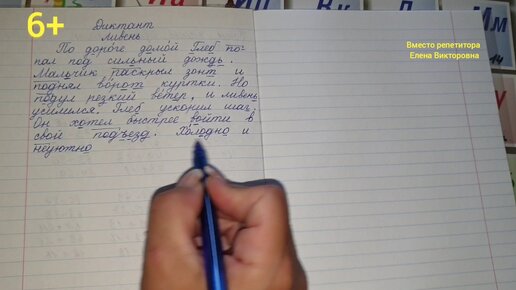 6+
Вместо репетитора
Елена Викторовна
Диктант
Ливень
По дороге домой Глеб по-
пал под сильный дождь.
Мальчик раскрыл зонт и
поднял ворот куртки. Но
подул резкий ветер, и ливень
усилился. Глеб ускорил шаг.
Он хотел быстрее войти в
свой подъезд. Холодно и
неуютно